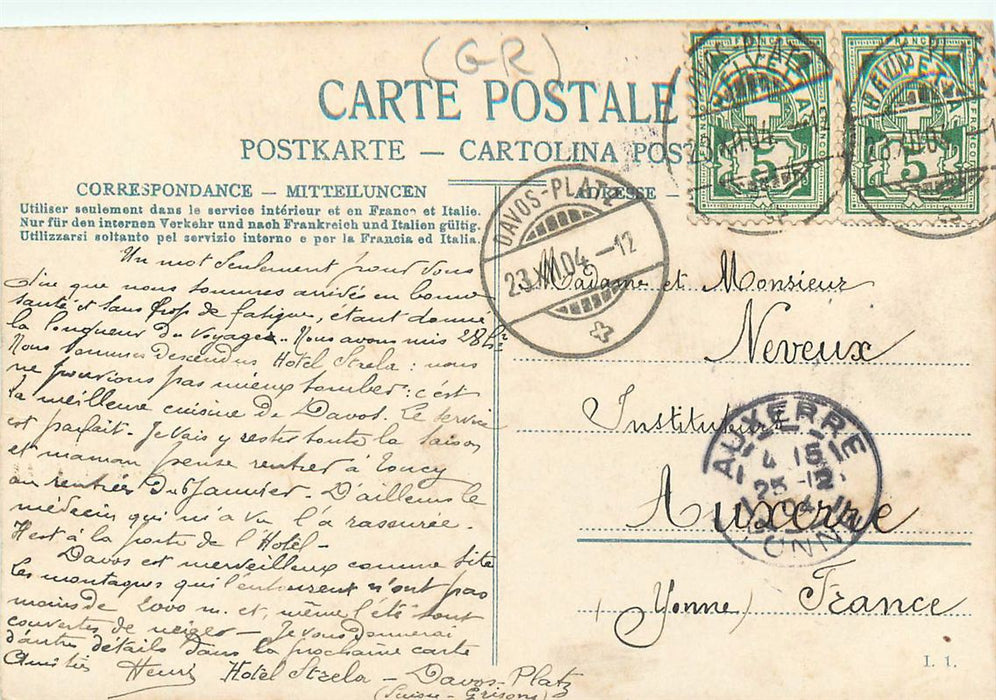 (GR)
CARTE POSTALE
POSTKARTE — CARTOLINA POS
CORRESPONDANCE — MITTEILUNCEN
ADRESSE —
Utiliser seulement dans le service intérieur et en France et Italie.
Nur für den internen Verkehr und nach Frankreich und Italien gültig.
Utilizzarsi soltanto pel servizio interno e per la Francia ed Italia.
FRANCO HELVETIA 5
FRANCO HELVETIA 5
DAVOS-PLATZ
23.XII.04.-12
DAVOS-PLATZ
23.XII.04.-12
DAVOS-PLATZ
23.XII.04.-12
Un mot seulement pour vous
dire que nous sommes arrivés en bonne
santé et sans trop de fatigue, étant donné
la longueur du voyage. Nous avons mis 28 h
Nous sommes descendus Hotel Strela : nous
ne pouvions pas mieux tomber : c'est
la meilleure cuisine de Davos. Le service
est parfait. Je vais y rester toute la saison
et maman pense rentrer à Toucy
au rentrées du Janvier - D'ailleurs le
médecin qui m'a vu l'a rassurée.
Il est à la porte de l'Hotel -
Davos est merveilleux comme site
Les montagnes qui l'entourent n'ont pas
moins de 2000 m. et, même l'été sont
couvertes de neige - Je vous donnerai
d'autres détails dans la prochaine carte
Amitiés Henri Hotel Strela - Davos-Platz
(Suisse - Grisons)
Madame et Monsieur
Neveux
Instituteurs
Auxerre
(Yonne) France
AUXERRE
4 15
25 -12
04
YONNE
I. 1.